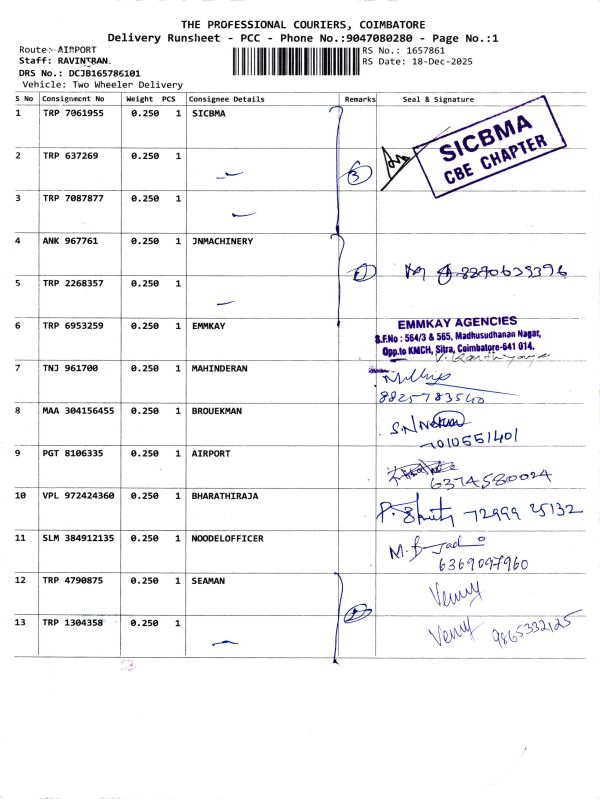 THE PROFESSIONAL COURIERS, COIMBATORE
Delivery Runsheet - PCC - Phone No.:9047080280 - Page No.:1
Route: AIRPORT
RS No.: 1657861
Staff: RAVINTRAN.
RS Date: 18-Dec-2025
DRS No.: DCJB165786101
Vehicle: Two Wheeler Delivery
S No Consignment No Weight PCS Consignee Details Remarks Seal & Signature
1 TRP 7061955 0.250 1 SICBMA
SICBMA
CBE CHAPTER
2 TRP 637269 0.250 1 3
3 TRP 7087877 0.250 1
4 ANK 967761 0.250 1 JNMACHINERY
8270635396
5 TRP 2268357 0.250 1
6 TRP 6953259 0.250 1 EMMKAY
EMMKAY AGENCIES
S.F.No : 564/3 & 565, Madhusudhanan Nagar,
Opp.to KMCH, Sitra, Coimbatore-641 014.
7 TNJ 961700 0.250 1 MAHINDERAN
8825783540
8 MAA 304156455 0.250 1 BROUEKMAN
7010551401
9 PGT 8106335 0.250 1 AIRPORT
6374580024
10 VPL 972424360 0.250 1 BHARATHIRAJA
72999 25132
11 SLM 384912135 0.250 1 NOODELOFFICER
6369097960
12 TRP 4790875 0.250 1 SEAMAN
Venny
13 TRP 1304358 0.250 1
Venny 9865332125
13